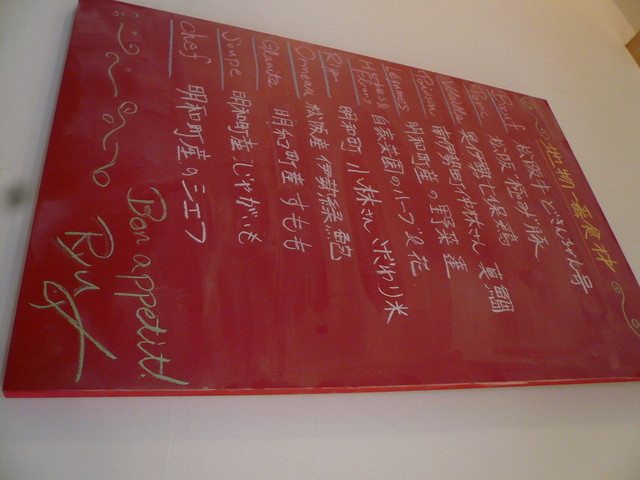 地物 食材
Bœuf 松阪牛 どんちゃん号
Porc 松阪 極み豚
Volaille 奥伊勢七保鶏
Poisson 南伊勢町 中林さん 真鯛
Légumes 明和町産の野菜達
Herbes et Fleurs 自家菜園のハーブと花
Riz 明和町 小林さん こだわり米
Ormeau 松阪産 伊勢黒鮑
Glante 明和町産すもも
Soupe 明和町産じゃがいも
Chef 明和町産のシェフ
Bon appetit!